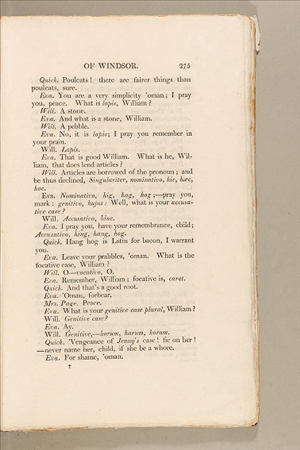 OF WINDSOR. 275
Quick. Poulcats! there are fairer things than
poulcats, sure.
Eva. You are a very simplicity 'oman; I pray
you, peace. What is lapis, William?
Will. A stone.
Eva. And what is a stone, William.
Will. A pebble.
Eva. No, it is lapis; I pray you remember in
your prain.
Will. Lapis.
Eva. That is good William. What is he, Wil-
liam, that does lend articles?
Will. Articles are borrowed of the pronoun; and
be thus declined, Singulariter, nominativo, hic, hæc,
hoc.
Eva. Nominativo, hig, hag, hog;—pray you,
mark: genitivo, hujus: Well, what is your accusa-
tive case?
Will. Accusativo, hinc.
Eva. I pray you, have your remembrance, child;
Accusativo, hing, hang, hog.
Quick. Hang hog is Latin for bacon, I warrant
you.
Eva. Leave your prabbles, 'oman. What is the
focative case, William?
Will. O—vocativo, O.
Eva. Remember, William; focative is, caret.
Quick. And that's a good root.
Eva. 'Oman, forbear.
Mrs. Page. Peace.
Eva. What is your genitive case plural, William?
Will. Genitive case?
Eva. Ay.
Will. Genitive,—horum, harum, horum.
Quick. 'Vengeance of Jenny's case! fie on her!
—never name her, child, if she be a whore.
Eva. For shame, 'oman.